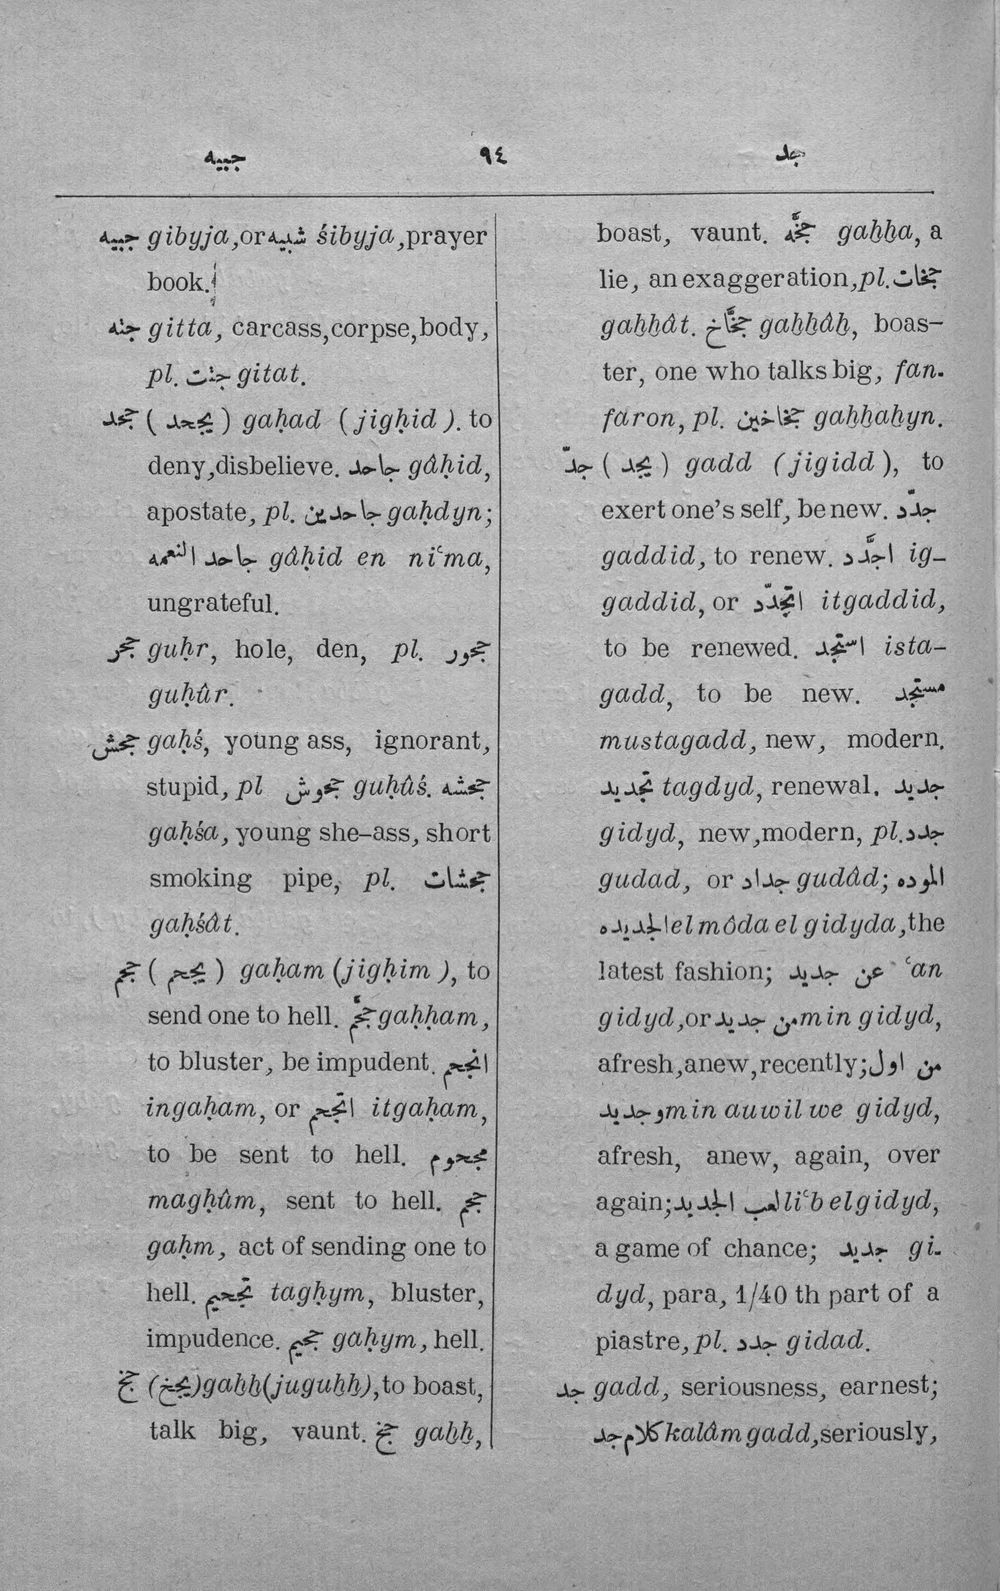 جبيه ٩٤ جد
جبيه gibyja,or شبيه śibyja,prayer
book.
جثه gitta, carcass,corpse,body,
pl. جثت gitat.
جحد ( يجحد ) gaḥad (jigḥid ). to
deny,disbelieve. جاحد gâḥid,
apostate, pl. جاحدين gaḥdyn;
جاحد النعمه gâḥid en niʿma,
ungrateful.
جحر guḥr, hole, den, pl. جحور
guḥûr.
جحش gaḥś, young ass, ignorant,
stupid, pl جحوش guḥûś. جحشه
gaḥśa, young she-ass, short
smoking pipe, pl. جحشات
gaḥśât.
جحم ( يجحم ) gaḥam (jigḥim ), to
send one to hell. جحَّم gaḥḥam,
to bluster, be impudent. انجحم
ingaḥam, or اتجحم itgaḥam,
to be sent to hell. مجحوم
magḥûm, sent to hell. جحم
gaḥm, act of sending one to
hell. تجحيم tagḥym, bluster,
impudence. جحيم gaḥym, hell.
جخ (يجخ)gaḫḫ(juguḫḫ),to boast,
talk big, vaunt. جخ gaḫḫ,
boast, vaunt. جخَّه gaḫḫa, a
lie, an exaggeration,pl. جخات
gaḫḫât. جخَّاخ gaḫḫâḫ, boas-
ter, one who talks big, fan-
faron, pl. جخاخين gaḫḫaḫyn.
جدّ ( يجد ) gadd (jigidd ), to
exert one's self, be new. جدّد
gaddid, to renew. اجدَّد ig-
gaddid, or اتجدّد itgaddid,
to be renewed. استجد ista-
gadd, to be new. مستجد
mustagadd, new, modern.
تجديد tagdyd, renewal. جديد
gidyd, new,modern, pl. جدد
gudad, or جداد gudâd; الموده
الجديده el môda el gidyda,the
latest fashion; عن جديد ʿan
gidyd,or من جديد min gidyd,
afresh,anew,recently; من اول
وجديد min auwil we gidyd,
afresh, anew, again, over
again; لعب الجديد liʿb el gidyd,
a game of chance; جديد gi-
dyd, para, 1/40 th part of a
piastre, pl. جدد gidad.
جد gadd, seriousness, earnest;
كلام جد kalâm gadd,seriously,